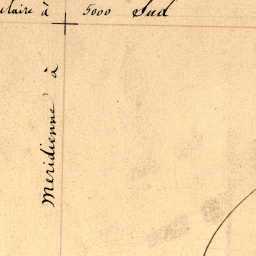 ulaire à 5000 Sud
Meridienne à